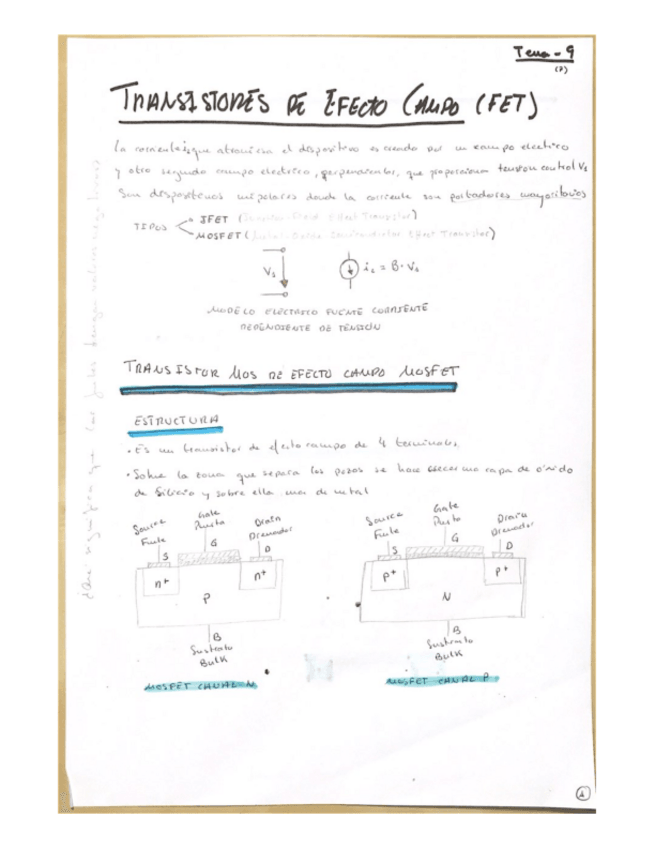 Tema - 9
(1)
TRANSISTORES DE EFECTO CAMPO (FET)
La corriente que atraviesa el dispositivo es creada por un campo electrico
y otro segundo campo electrico, perpendicular, que proporciona tension control Vs
Son dispositivos unipolares donde la corriente son portadores mayoritarios
TIPOS
JFET (Junction Field Effect Transistor)
MOSFET (Metal-Oxide Semiconductor Effect Transistor)
Vs
is = B · Vs
MODELO ELECTRICO FUENTE CORRIENTE
DEPENDIENTE DE TENSIÓN
TRANSISTOR MOS DE EFECTO CAMPO MOSFET
ESTRUCTURA
• Es un transistor de efecto campo de 4 terminales.
• Sobre la zona que separa los pozos se hace crecer una capa de óxido
de Silicio y sobre ella una de metal
Source Fuente S
Gate Puerta G
Drain Drenador D
n+ n+
P
B
Sustrato
Bulk
MOSFET CANAL N
Source Fuente S
Gate Puerta G
Drain Drenador D
P+ P+
N
B
Sustrato
Bulk
MOSFET CANAL P
1